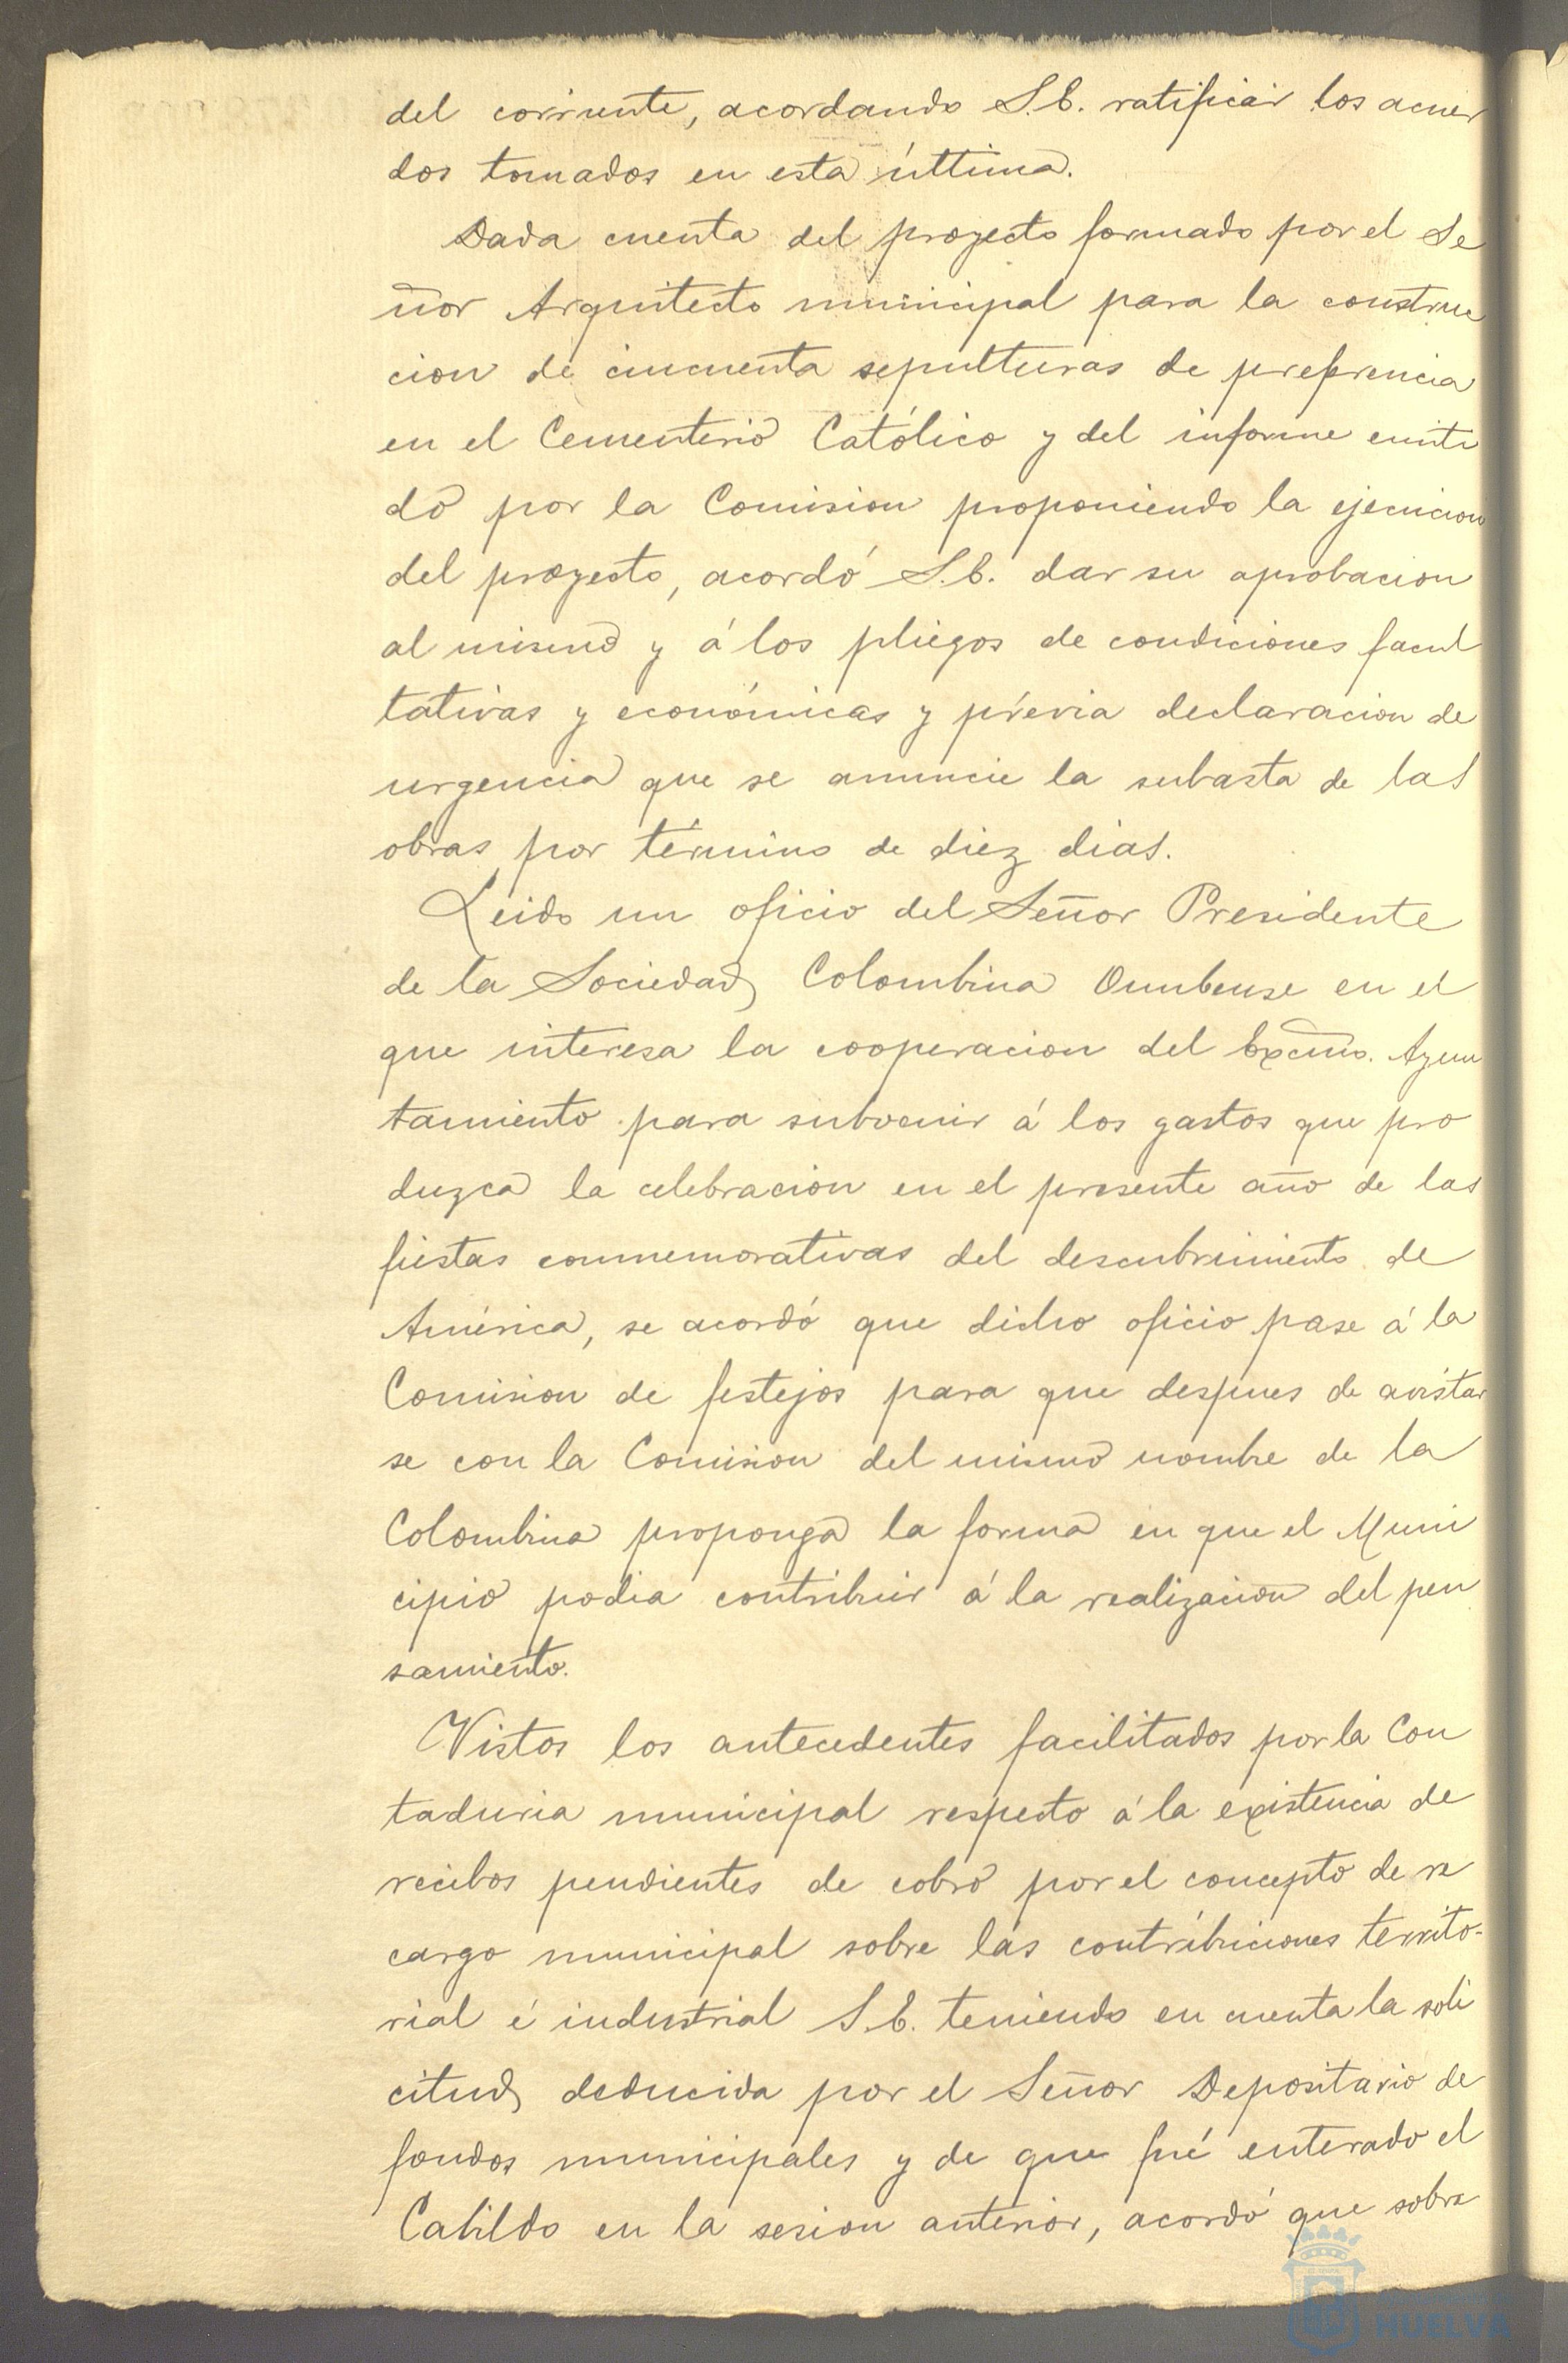 del corriente, acordando S.E. ratificar los acuer
dos tomados en esta última.
Dada cuenta del proyecto formado por el Se
ñor Arquitecto municipal para la construc
cion de cincuenta sepulturas de preferencia
en el Cementerio Católico y del informe emiti
do por la Comision proponiendo la ejecucion
del proyecto, acordó S.E. dar su aprobacion
al mismo y á los pliegos de condiciones facul
tativas y económicas y prévia declaracion de
urgencia que se anuncie la subasta de las
obras por término de diez dias.
Leido un oficio del Señor Presidente
de la Sociedad Colombina Onubense en el
que interesa la cooperacion del Excmo. Ayun
tamiento para subvenir á los gastos que pro
duzca la celebracion en el presente año de las
fiestas conmemorativas del descubrimiento de
América, se acordó que dicho oficio pase á la
Comision de festejos para que despues de avistar
se con la Comision del mismo nombre de la
Colombina proponga la forma en que el Muni
cipio podia contribuir á la realizacion del pen
samiento.
Vistos los antecedentes facilitados por la Con
taduria municipal respecto á la existencia de
recibos pendientes de cobro por el concepto de re
cargo municipal sobre las contribuciones territo-
rial é industrial S.E. teniendo en cuenta la soli
citud deducida por el Señor Depositario de
fondos municipales y de que fué enterado el
Cabildo en la sesion anterior, acordó que sobre
HUELVA